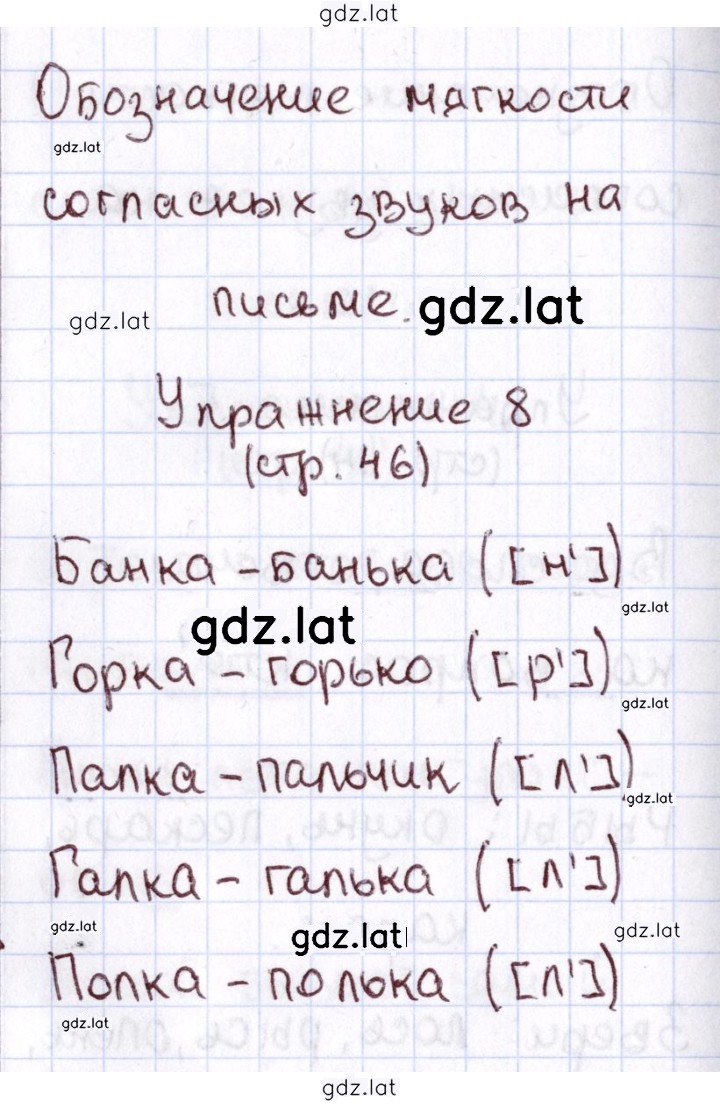 gdz.lat
Обозначение мягкости
gdz.lat
согласных звуков на
письме.
gdz.lat
gdz.lat
Упражнение 8
(стр. 46)
Банка – банька ([н'])
gdz.lat
gdz.lat
Горка – горько ([р'])
gdz.lat
Палка – пальчик ([л'])
gdz.lat
Галка – галька ([л'])
gdz.lat
gdz.lat
gdz.lat
Полка – полька ([л'])
gdz.lat
gdz.lat